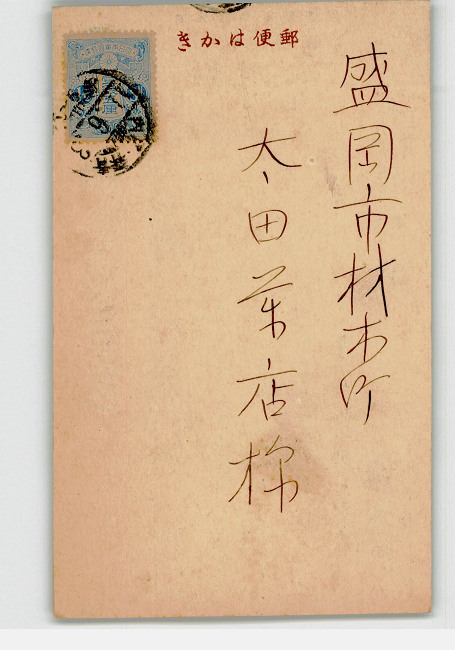 郵便はかき
盛岡市材木町
太田薬店様